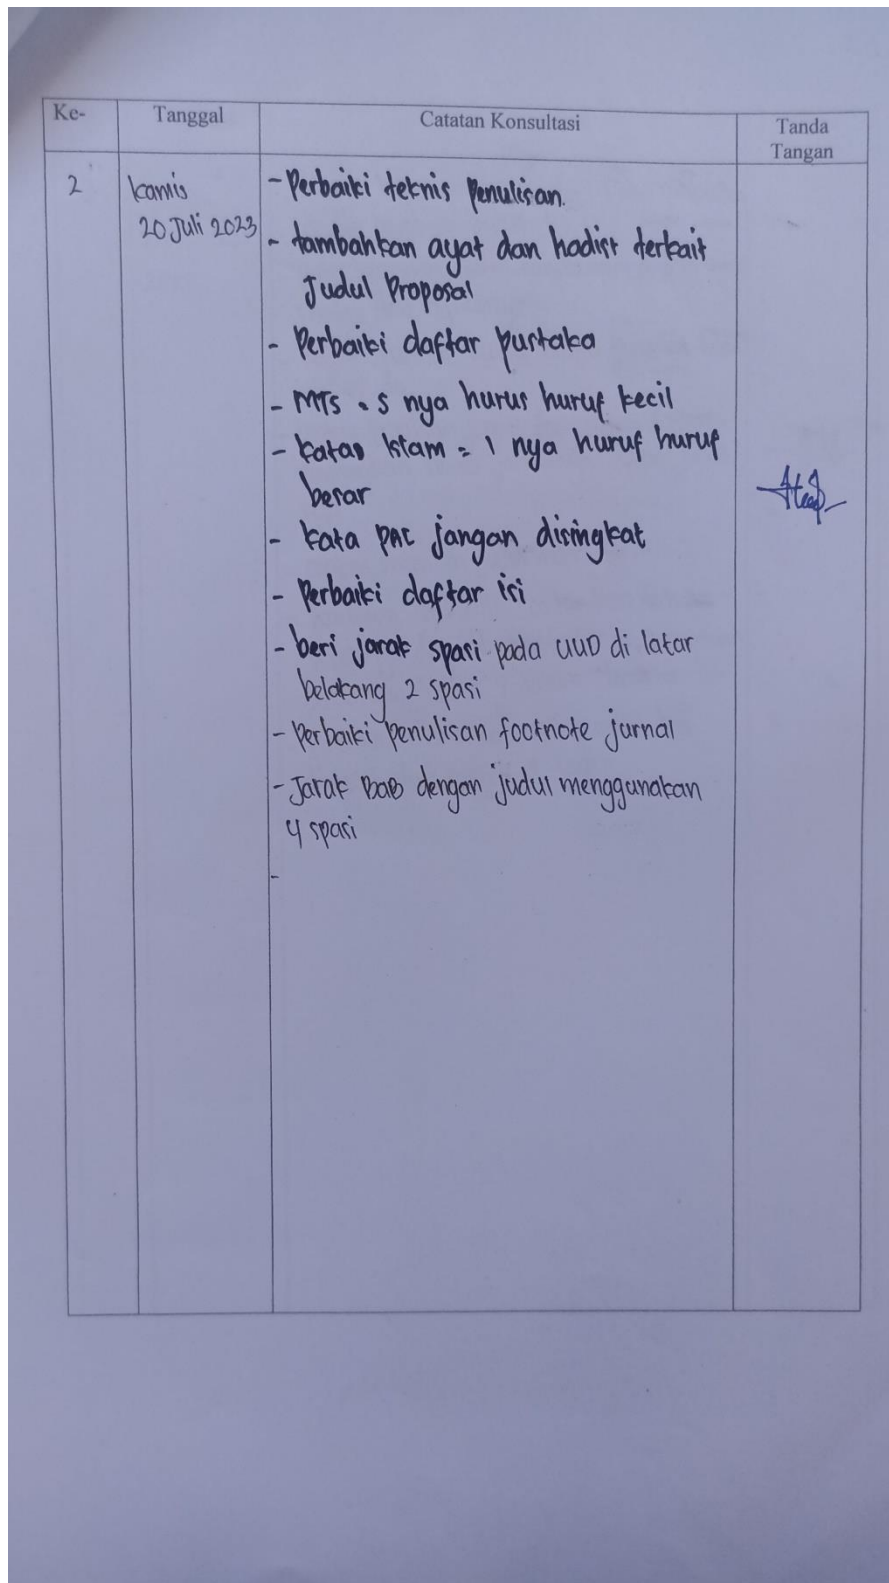 Ke-
Tanggal
Catatan Konsultasi
Tanda
Tangan
2
Kamis
20 Juli 2023
- Perbaiki teknis penulisan.
- tambahkan ayat dan hadist terkait
Judul Proposal
- Perbaiki daftar pustaka
- MTs = s nya hurus huruf kecil
- katas Islam = I nya huruf huruf
besar
- kata PAI jangan disingkat
- Perbaiki daftar isi
- beri jarak spasi pada UUD di latar
belakang 2 spasi
- Perbaiki penulisan footnote jurnal
- Jarak BAB dengan judul menggunakan
4 spasi
-